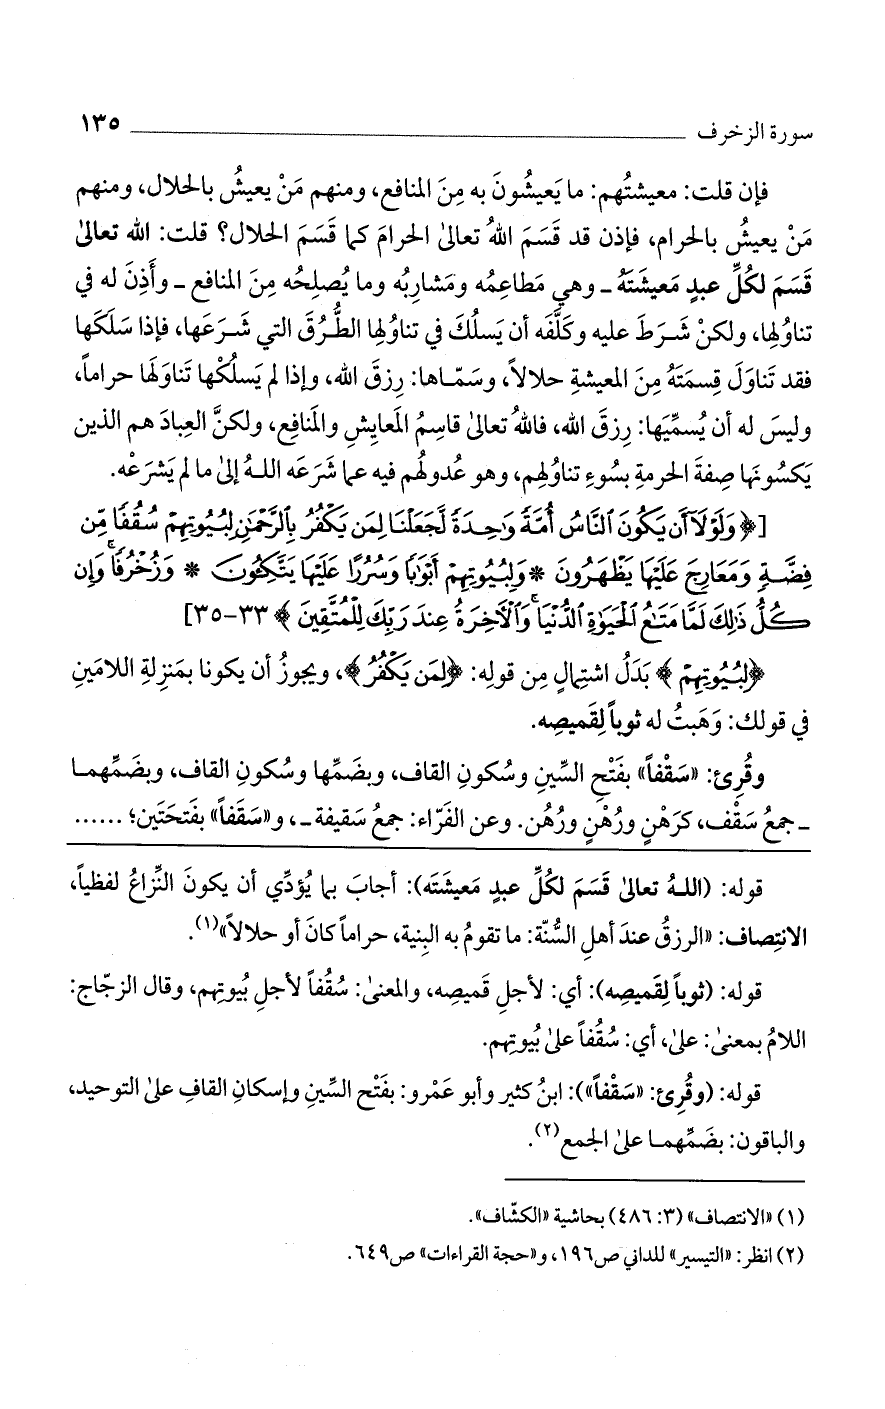 سورة الزخرف ١٣٥
فإن قلت: معيشتُهم: ما يَعيشُونَ به مِنَ المنافع، ومنهم مَنْ يعيشُ بالحلال، ومنهم
مَنْ يعيشُ بالحرام، فإذن قد قَسَمَ اللهُ تعالىٰ الحرامَ كما قَسَمَ الحلال؟ قلت: الله تعالىٰ
قَسَمَ لكُلِّ عبدٍ مَعيشَتَهُ ـ وهي مَطاعِمُه ومَشاربُه وما يُصلِحُه مِنَ المنافع ـ وأَذِنَ له في
تناوُلِها، ولكنْ شَرَطَ عليه وكَلَّفَه أن يَسلُكَ في تناوُلِها الطُّرُقَ التي شَرَعَها، فإذا سَلَكَها
فقد تَناوَلَ قِسمَتَهُ مِنَ المعيشةِ حلالاً، وسَمّاها: رِزقَ الله، وإذا لم يَسلُكْها تَناوَلَها حراماً،
وليسَ له أن يُسمِّيَها: رِزقَ الله، فاللهُ تعالىٰ قاسِمُ المَعايشِ والمَنافِع، ولكنَّ العِبادَ هم الذين
يَكسُونَها صِفةَ الحرمةِ بسُوءِ تناوُلِهم، وهو عُدولُهم فيه عما شَرَعَه اللهُ إلىٰ ما لم يَشرَعْه.
[﴿وَلَوْلَآ أَن يَكُونَ ٱلنَّاسُ أُمَّةً وَٰحِدَةً لَّجَعَلْنَا لِمَن يَكْفُرُ بِٱلرَّحْمَٰنِ لِبُيُوتِهِمْ سُقُفًا مِّن
فِضَّةٍ وَمَعَارِجَ عَلَيْهَا يَظْهَرُونَ * وَلِبُيُوتِهِمْ أَبْوَٰبًا وَسُرُرًا عَلَيْهَا يَتَّكِـُٔونَ * وَزُخْرُفًا ۚ وَإِن
كُلُّ ذَٰلِكَ لَمَّا مَتَٰعُ ٱلْحَيَوٰةِ ٱلدُّنْيَا ۚ وَٱلْأَخِرَةُ عِندَ رَبِّكَ لِلْمُتَّقِينَ﴾ ٣٣-٣٥]
﴿لِبُيُوتِهِمْ﴾ بَدَلُ اشتِمالٍ مِن قولِه: ﴿لِمَن يَكْفُرُ﴾، ويجوزُ أن يكونا بمَنزِلةِ اللامَينِ
في قولك: وَهَبتُ له ثوباً لِقَميصِه.
وقُرِئ: «سَقْفاً» بفَتْحِ السِّينِ وسُكونِ القاف، وبضَمِّها وسُكونِ القاف، وبضَمِّهما
ـ جمعُ سَقْف، كرَهْنٍ ورُهْنٍ ورُهُن. وعن الفَرّاء: جمعُ سَقيفة ـ، و«سَقَفاً» بفَتحَتَين؛ ......
قوله: (اللهُ تعالىٰ قَسَمَ لكُلِّ عبدٍ مَعيشَتَه): أجابَ بما يُؤدِّي أن يكونَ النِّزاعُ لفظياً،
الانتِصاف: «الرزقُ عندَ أهلِ السُّنّة: ما تقومُ به البِنية، حراماً كانَ أو حلالاً»(١).
قوله: (ثوباً لِقَميصِه): أي: لأجلِ قَميصِه، والمعنىٰ: سُقُفاً لأجلِ بُيوتِهم، وقال الزجّاج:
اللامُ بمعنىٰ: علىٰ، أي: سُقُفاً علىٰ بُيوتِهم.
قوله: (وقُرِئ: «سَقْفاً»): ابنُ كثير وأبو عَمْرو: بفَتْحِ السِّينِ وإسكانِ القافِ علىٰ التوحيد،
والباقون: بضَمِّهما علىٰ الجمع(٢).
(١) «الانتصاف» (٣: ٤٨٦) بحاشية «الكشّاف».
(٢) انظر: «التيسير» للداني ص١٩٦، و«حجة القراءات» ص٦٤٩.